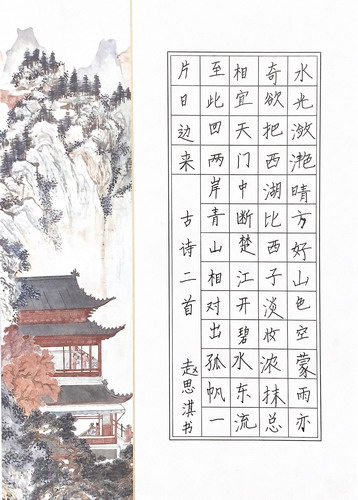 水光潋滟晴方好山色空蒙雨亦
奇欲把西湖比西子淡妆浓抹总
相宜天门中断楚江开碧水东流
至此四两岸青山相对出孤帆一
片日边来 古诗二首 赵思淇书